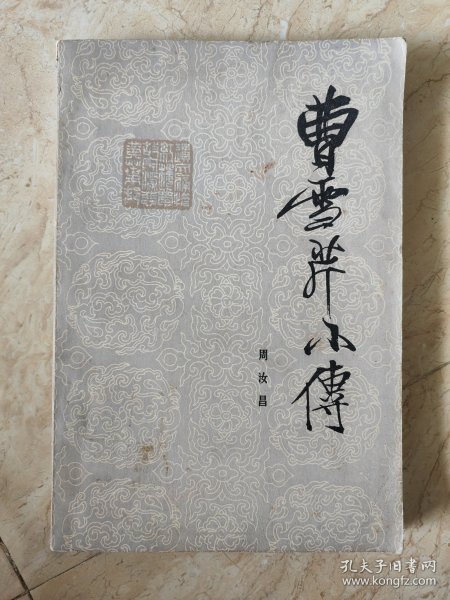 曹雪芹小傳
周汝昌
孔夫子旧书网
www.kongfz.com